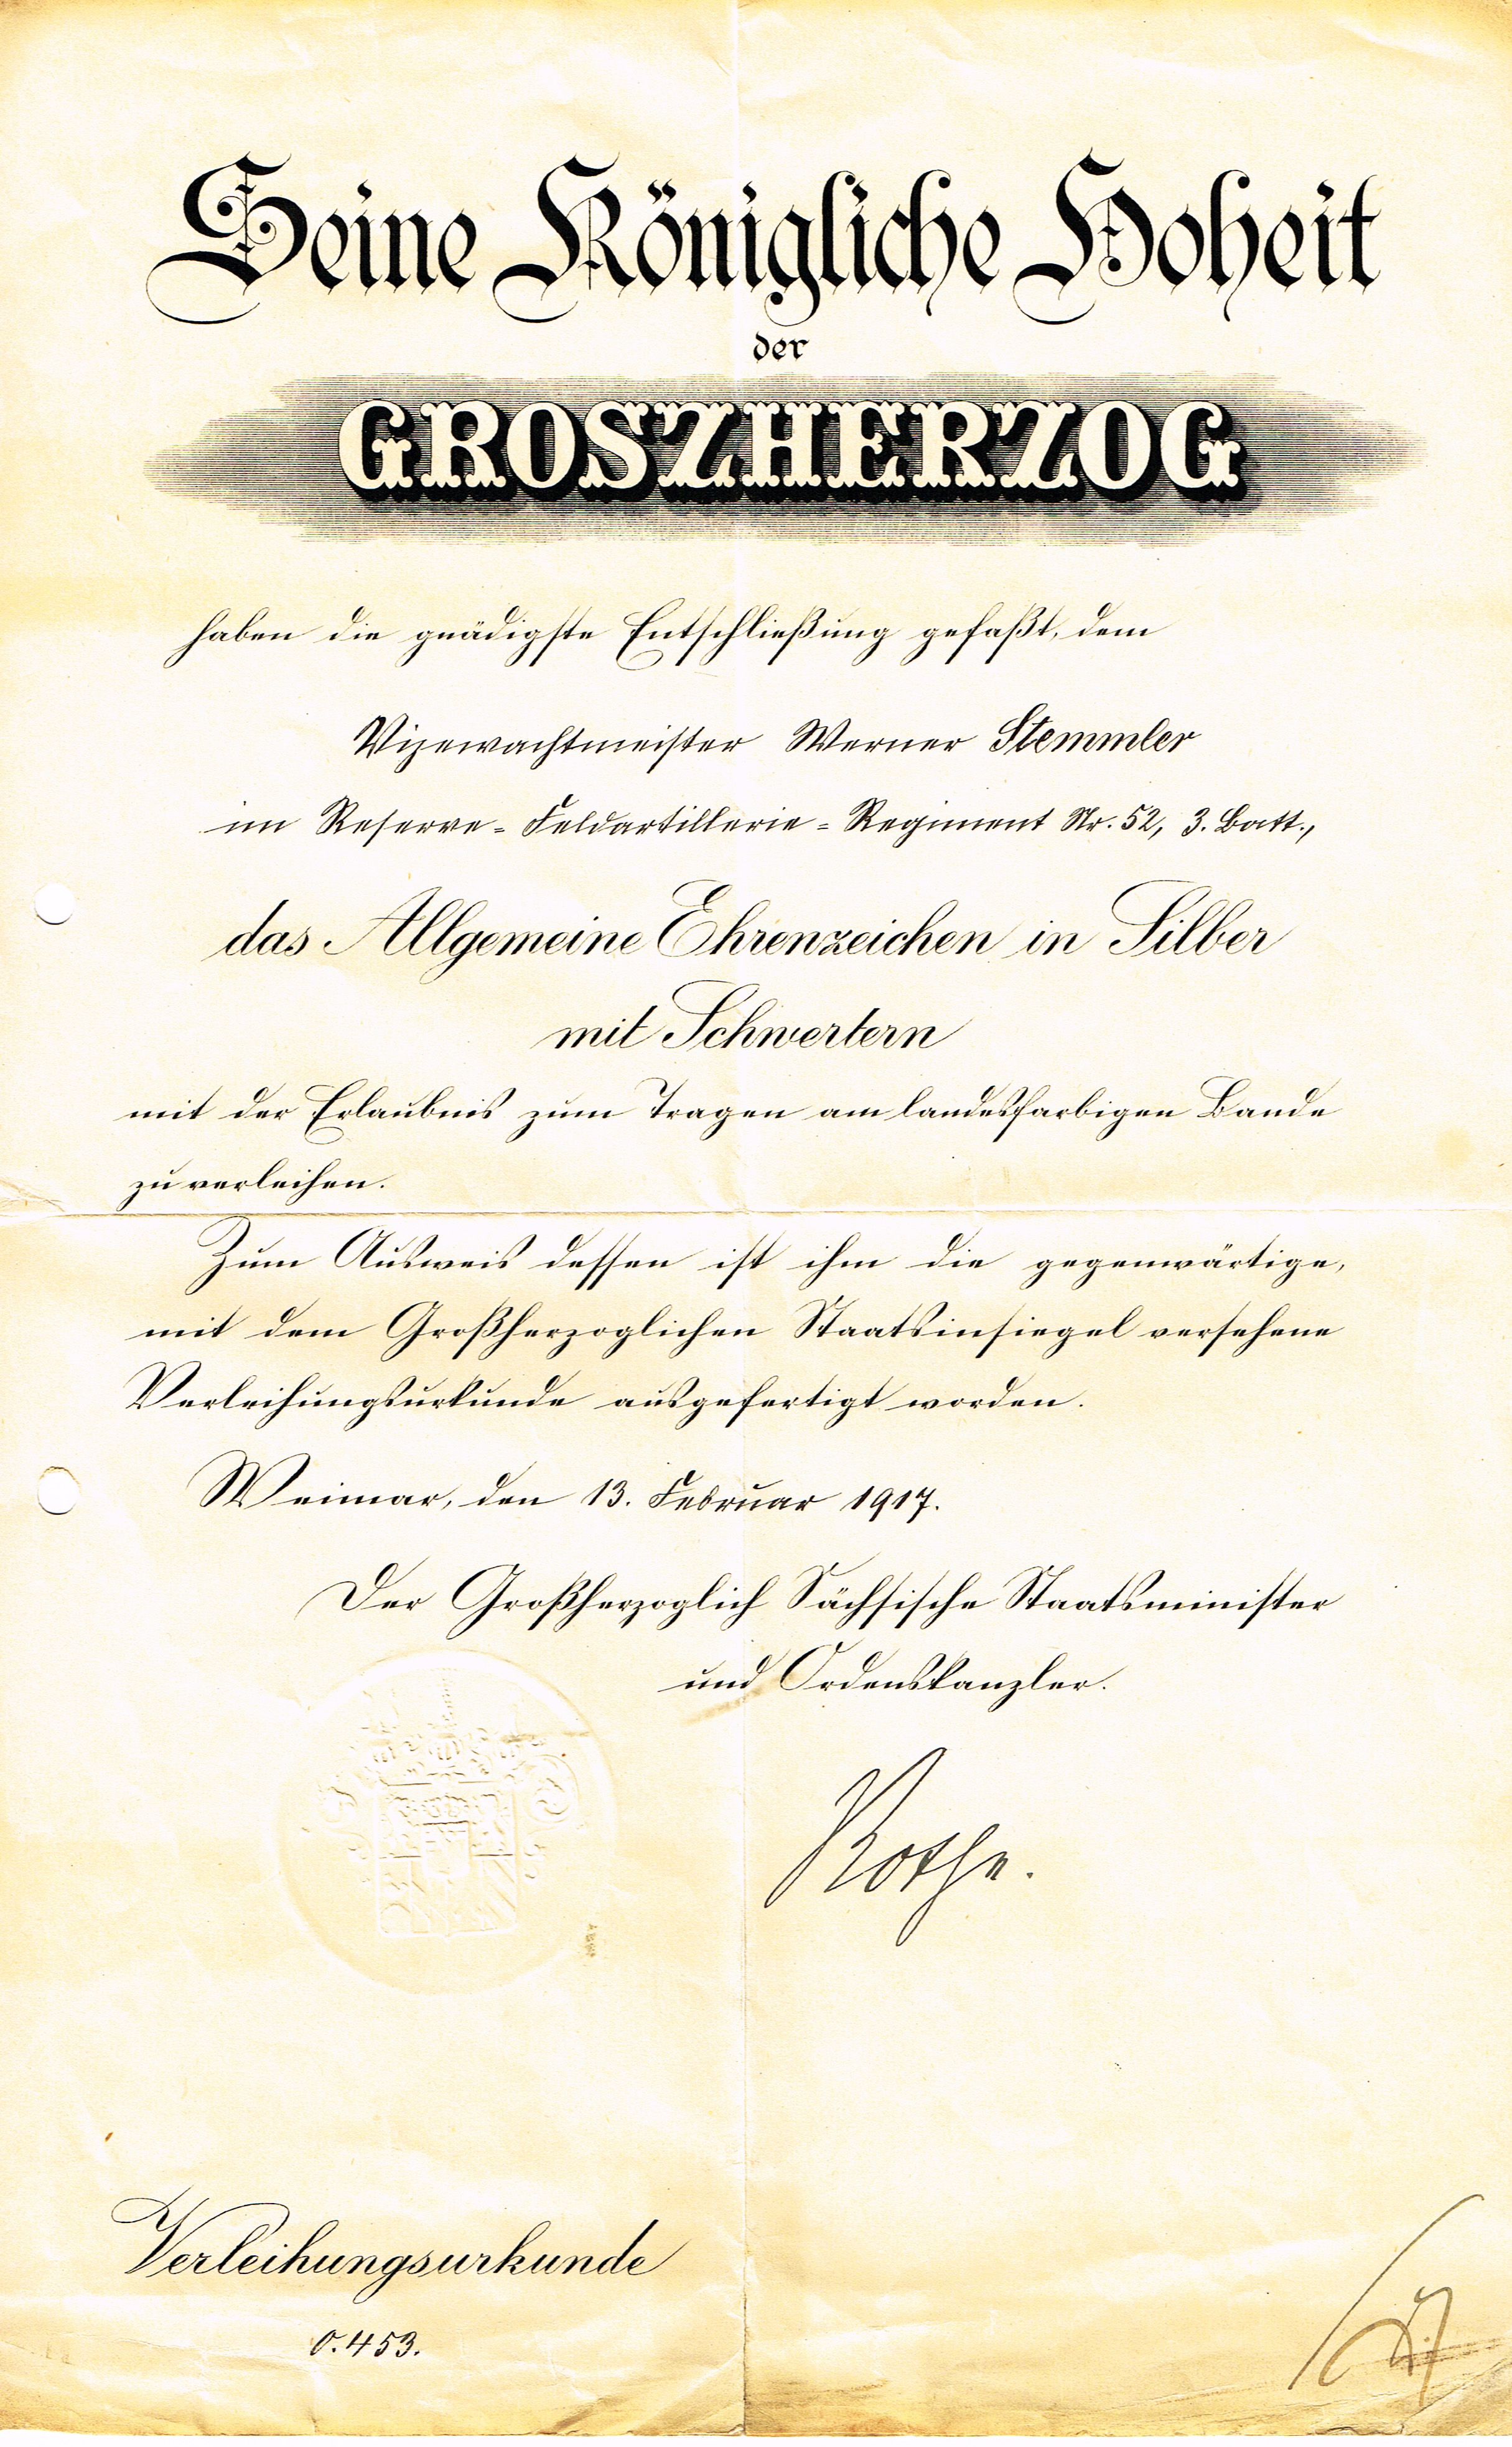 Seine Königliche Hoheit
der
GROSZHERZOG
haben die gnädigste Entschließung gefaßt, dem
Vizewachtmeister Werner Stemmler
im Reserve-Feldartillerie-Regiment Nr. 52, 3. Batt.,
das Allgemeine Ehrenzeichen in Silber
mit Schwertern
mit der Erlaubnis zum Tragen am landesfarbigen Bande
zu verleihen.
Zum Ausweis dessen ist ihm die gegenwärtige,
mit dem Großherzoglichen Staatsinsiegel versehene
Verleihungsurkunde ausgefertigt worden.
Weimar, den 13. Februar 1917.
Der Großherzoglich Sächsische Staatsminister
und Ordenskanzler.
Rothe.
Verleihungsurkunde
O. 453.